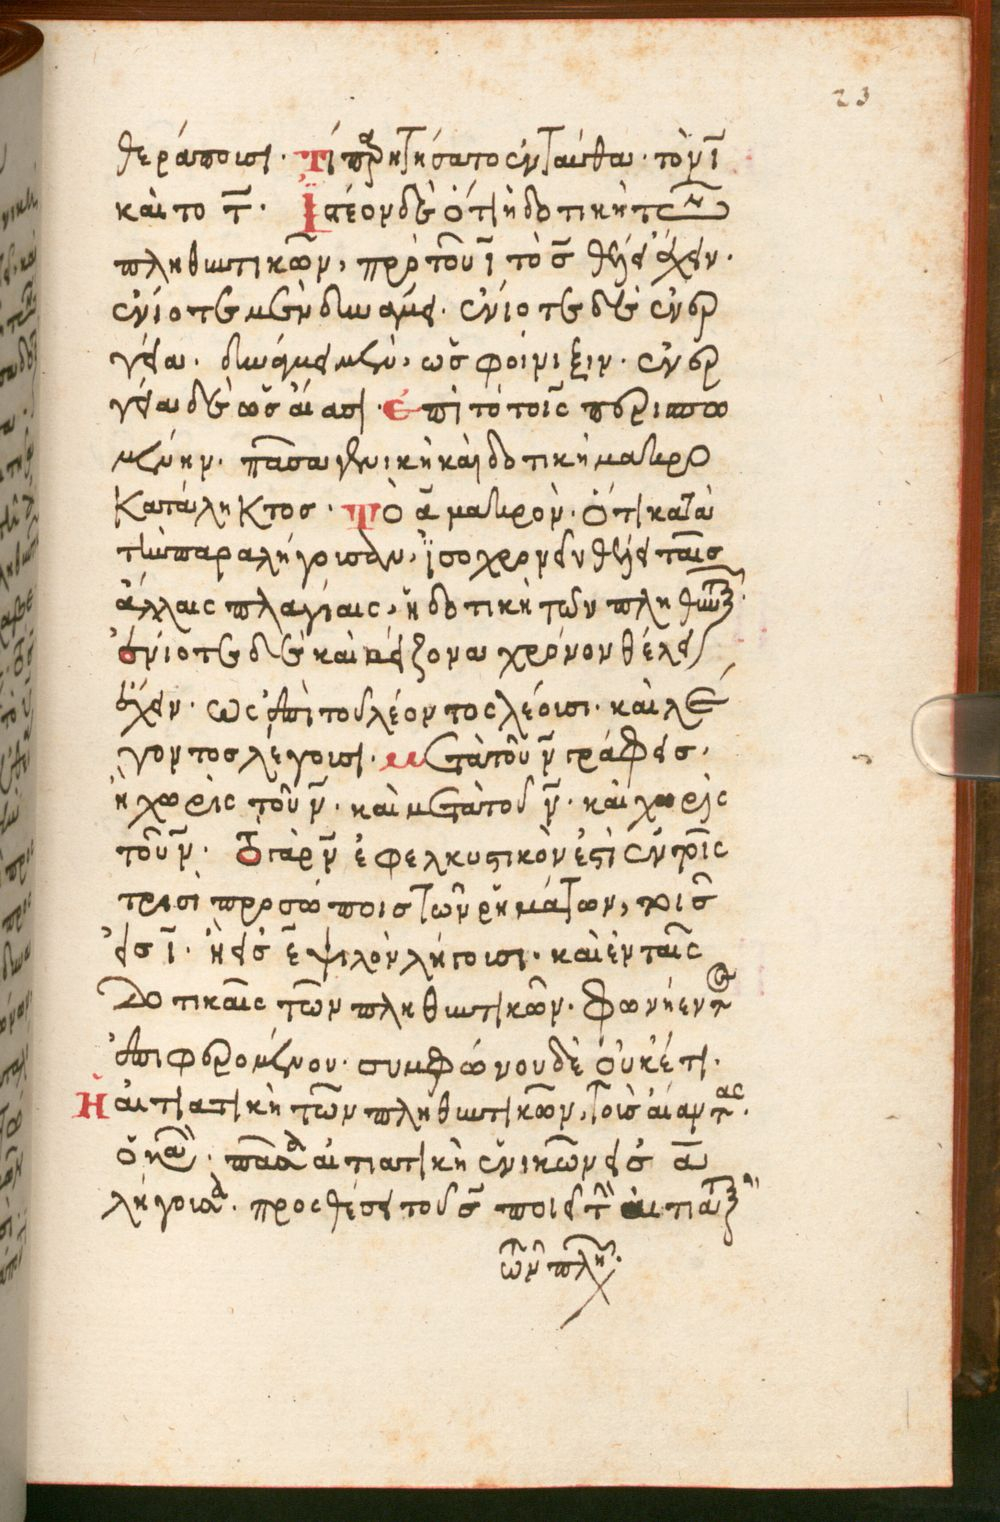 23
θεράποισι. Τί παρῃτήσατο ἐνταῦθα. τὸν ῑ
καὶ το τ̄. Ἰστέον δὲ ὅτι ἡ δοτικὴ τῶν
πληθυντικῶν, πρὸ τοῦ ῑ τὸ σ̄ θέλει ἔχειν.
ἐνίοτε μὲν δυνάμει. ἐνίοτε δὲ ἐνερ
γείᾳ. δυνάμει μὲν, ὡς φοίνιξιν. ἐνερ
γείᾳ δὲ ὡς αἴασι. ἐπὶ τὸ τοῖς περισπω
μένην. πᾶσα γενικὴ καὶ δοτικὴ μακρο
κατάληκτος. Τὸ ᾱ μακρὸν. ὅτι κατὰ
τὴν παραλήγουσαν, ἰσοχρονεῖν θέλει ταῖς
ἄλλαις πλαγίαις, ἡ δοτικὴ τῶν πληθυντικῶν.
ἐνίοτε δὲ καὶ μείζονα χρόνον θέλει
ἔχειν. ὡς ἀπὸ τοῦ λέοντος λέουσι. καὶ λέ
γοντος λέγουσι. μετὰ τοῦ ν̄ γράφεις.
ἢ χωρὶς τοῦ ν̄. καὶ μετὰ τοῦ ν̄. καὶ χωρὶς
τοῦ ν̄. Τὸ γὰρ ν̄ ἐφελκυστικὸν ἐστὶ ἐν τοῖς
τρισὶ προσώποις τῶν ῥημάτων, τοῖς
εἰς ῑ. ἢ εἰς ε̄ ψιλὸν λήγουσι. καὶ ἐν ταῖς
δοτικαῖς τῶν πληθυντικῶν. φωνήεντος
ἐπιφερομένου. συμφώνου δὲ οὐκέτι.
Ἡ αἰτιατικὴ τῶν πληθυντικῶν, τοὺς αἴαντας.
ὁ κανών. πᾶσα αἰτιατικὴ ἑνικῶν εἰς ᾱ
λήγουσα. προσθέσει τοῦ σ̄ ποιεῖ τὴν αἰτιατικὴν
τῶν πληθ.